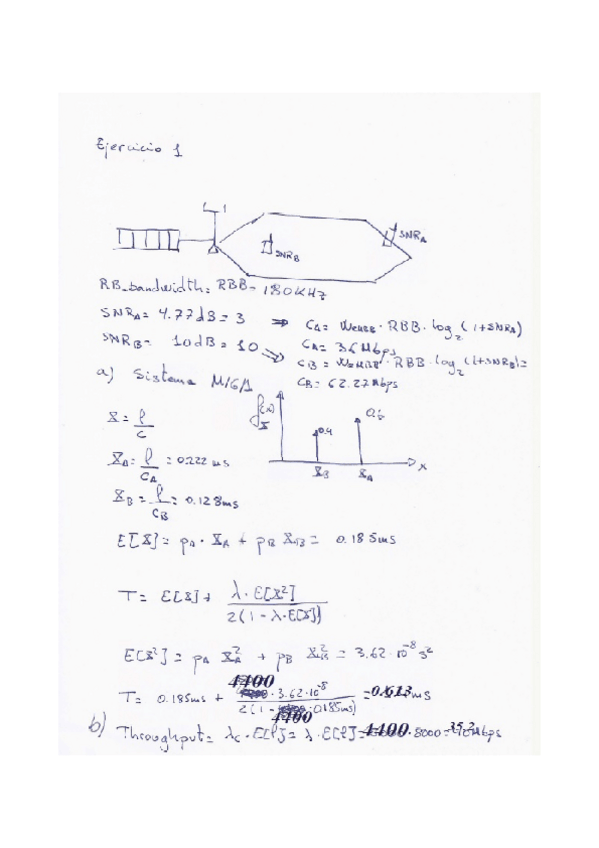 Ejercicio 1
SNR_B
SNR_A
RB_bandwidth = RBB = 180KHz
SNR_A = 4.77dB = 3 ⇒ C_A = W_eMBB · RBB · log_2 (1+SNR_A)
C_A = 36 Mbps
SNR_B = 10dB = 10 ⇒ C_B = W_eMBB · RBB · log_2 (1+SNR_B) =
C_B = 62.27Mbps
a) Sistema M/G/1
f_X(x)
0.4
0.6
X_B X_A x
X = l/C
X_A = l/C_A = 0.222 ms
X_B = l/C_B = 0.128ms
E[X] = p_A · X_A + p_B X_B = 0.185ms
T = E[X] + λ·E[X²] / 2(1-λ·E[X])
E[X²] = p_A X_A² + p_B X_B² = 3.62·10^-8 s²
T = 0.185ms + 4400 · 3.62·10^-8 / 2(1 - 4400 · 0.185ms) = 0.613 ms
b) Throughput = λ_c · E[l] = λ · E[l] = 4400 · 8000 = 35.2 Mbps